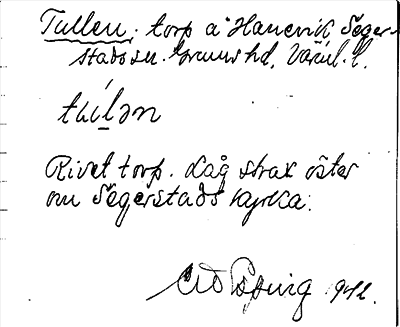 Tullen: torp å Hanevik Seger-
stads sn. Grums hd, Värml. l.
tu̍lən
Rivet torp. Låg strax öster
om Segerstads kyrka.
1942.